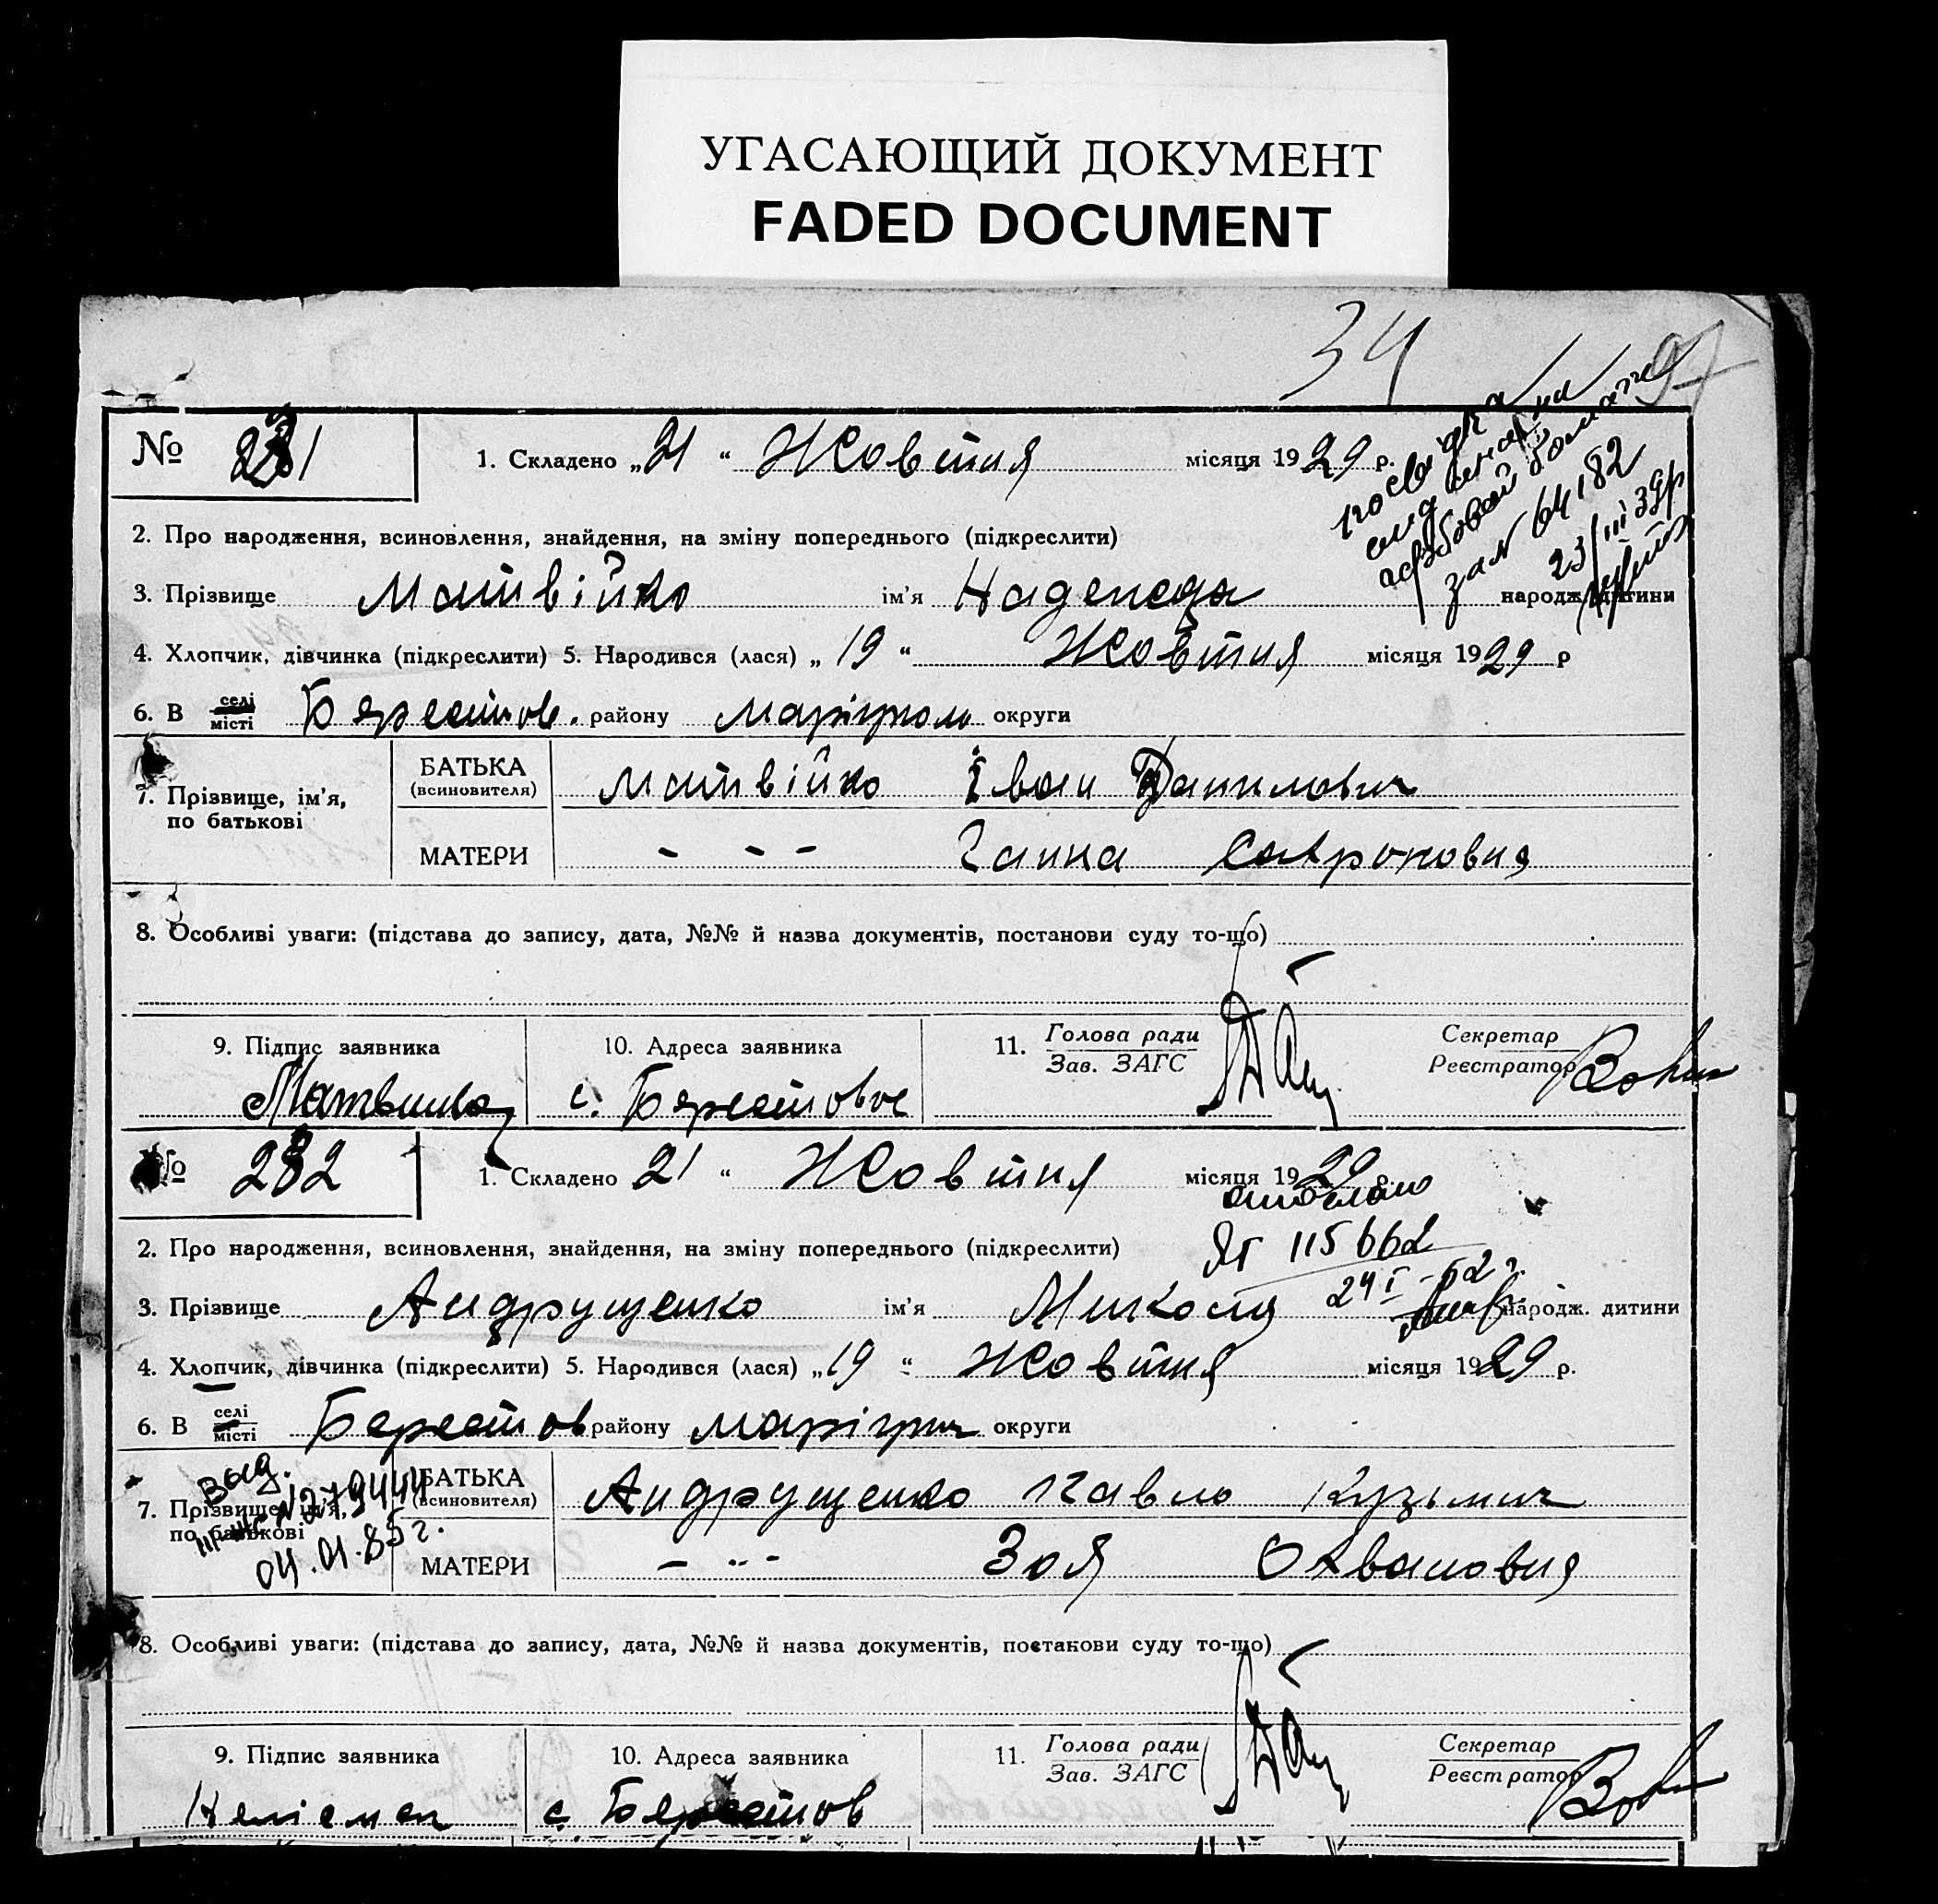 УГАСАЮЩИЙ ДОКУМЕНТ
FADED DOCUMENT
34
97
№ 281
1. Складено „21 “ Жовтня місяця 1929 р.
2. Про народження, всиновлення, знайдення, на зміну попереднього (підкреслити)
64182
23/III 39р
3. Прізвище Матвійко ім'я Надежда народж. дитини
4. Хлопчик, дівчинка (підкреслити) 5. Народився (лася) „ 19 “ Жовтня місяця 1929 р
6. В селі місті Берестов. району Маріупол округи
7. Прізвище, ім'я, по батькові
БАТЬКА (всиновителя) Матвійко Іван Данилович
МАТЕРИ - - - Ганна
8. Особливі уваги: (підстава до запису, дата, №№ й назва документів, постанови суду то-що)
9. Підпис заявника
10. Адреса заявника
11. Голова ради Зав. ЗАГС
Секретар Реєстратор
с. Берестовое
№ 282
1. Складено 21 “ Жовтня місяця 1929 р.
2. Про народження, всиновлення, знайдення, на зміну попереднього (підкреслити)
115662
24 I - 52 г.
3. Прізвище Андрущенко ім'я Микола народж. дитини
4. Хлопчик, дівчинка (підкреслити) 5. Народився (лася) „19 “ Жовтня місяця 1929 р.
6. В селі місті Берестов району округи
7. Прізвище, ім'я, по батькові
выд.
04.01.85г.
БАТЬКА (всиновителя) Андрущенко Павло Кузьмич
МАТЕРИ - - - Зоя
8. Особливі уваги: (підстава до запису, дата, №№ й назва документів, постанови суду то-що)
9. Підпис заявника
10. Адреса заявника
11. Голова ради Зав. ЗАГС
Секретар Реєстратор
с. Берестов